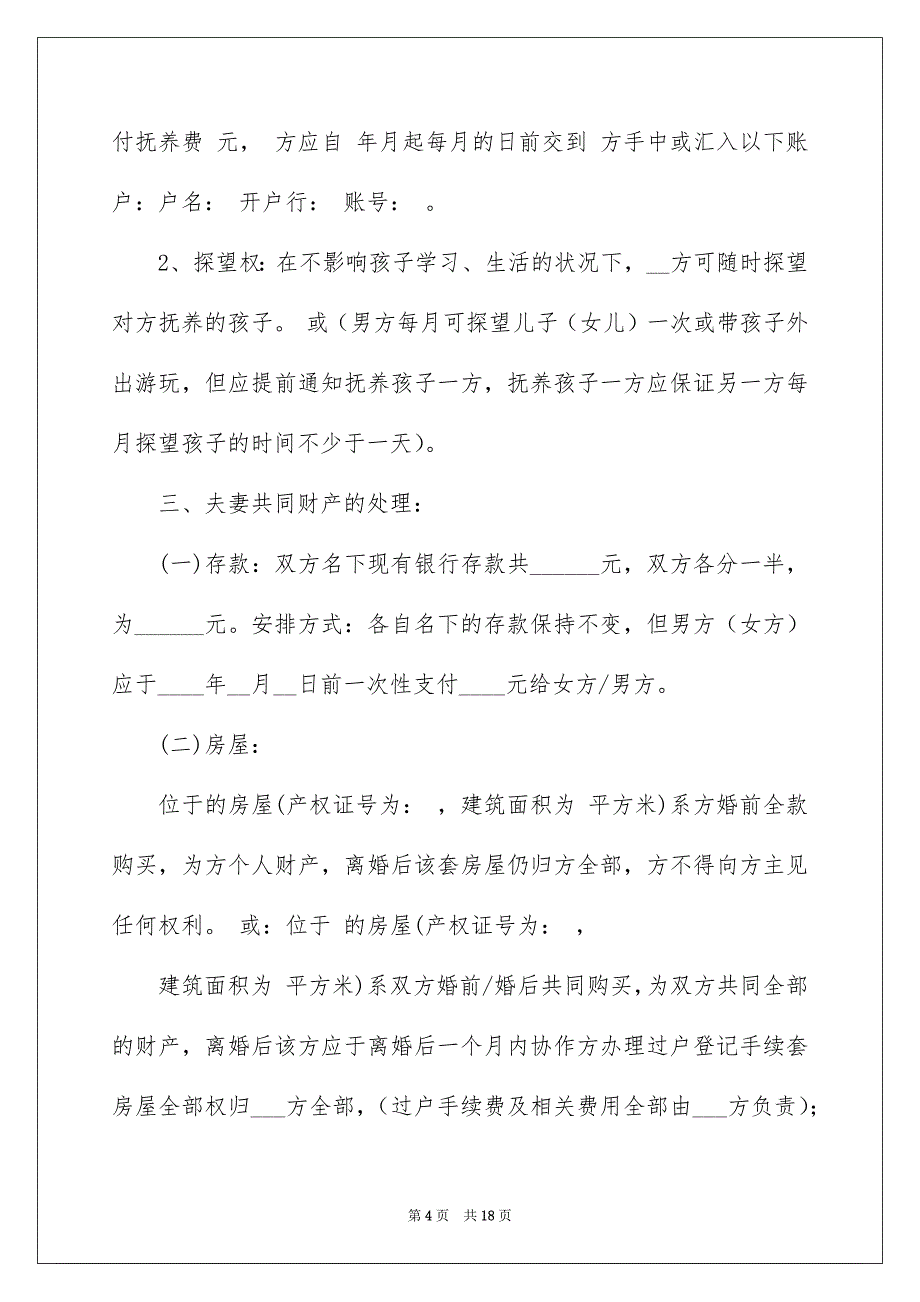 付抚养费 元， 方应自 年月起每月的日前交到 方手中或汇入以下账
户：户名： 开户行： 账号： 。
2、探望权：在不影响孩子学习、生活的状况下，__方可随时探望
对方抚养的孩子。 或（男方每月可探望儿子（女儿）一次或带孩子外
出游玩，但应提前通知抚养孩子一方，抚养孩子一方应保证另一方每
月探望孩子的时间不少于一天）。
三、夫妻共同财产的处理：
(一)存款：双方名下现有银行存款共______元，双方各分一半，
为______元。安排方式：各自名下的存款保持不变，但男方（女方）
应于____年__月__日前一次性支付____元给女方/男方。
(二)房屋：
位于的房屋(产权证号为： ，建筑面积为 平方米)系方婚前全款
购买，为方个人财产，离婚后该套房屋仍归方全部，方不得向方主见
任何权利。 或：位于 的房屋(产权证号为： ，
建筑面积为 平方米)系双方婚前/婚后共同购买，为双方共同全部
的财产，离婚后该方应于离婚后一个月内协作方办理过户登记手续套
房屋全部权归___方全部，（过户手续费及相关费用全部由___方负责）；
第 4 页 共 18 页